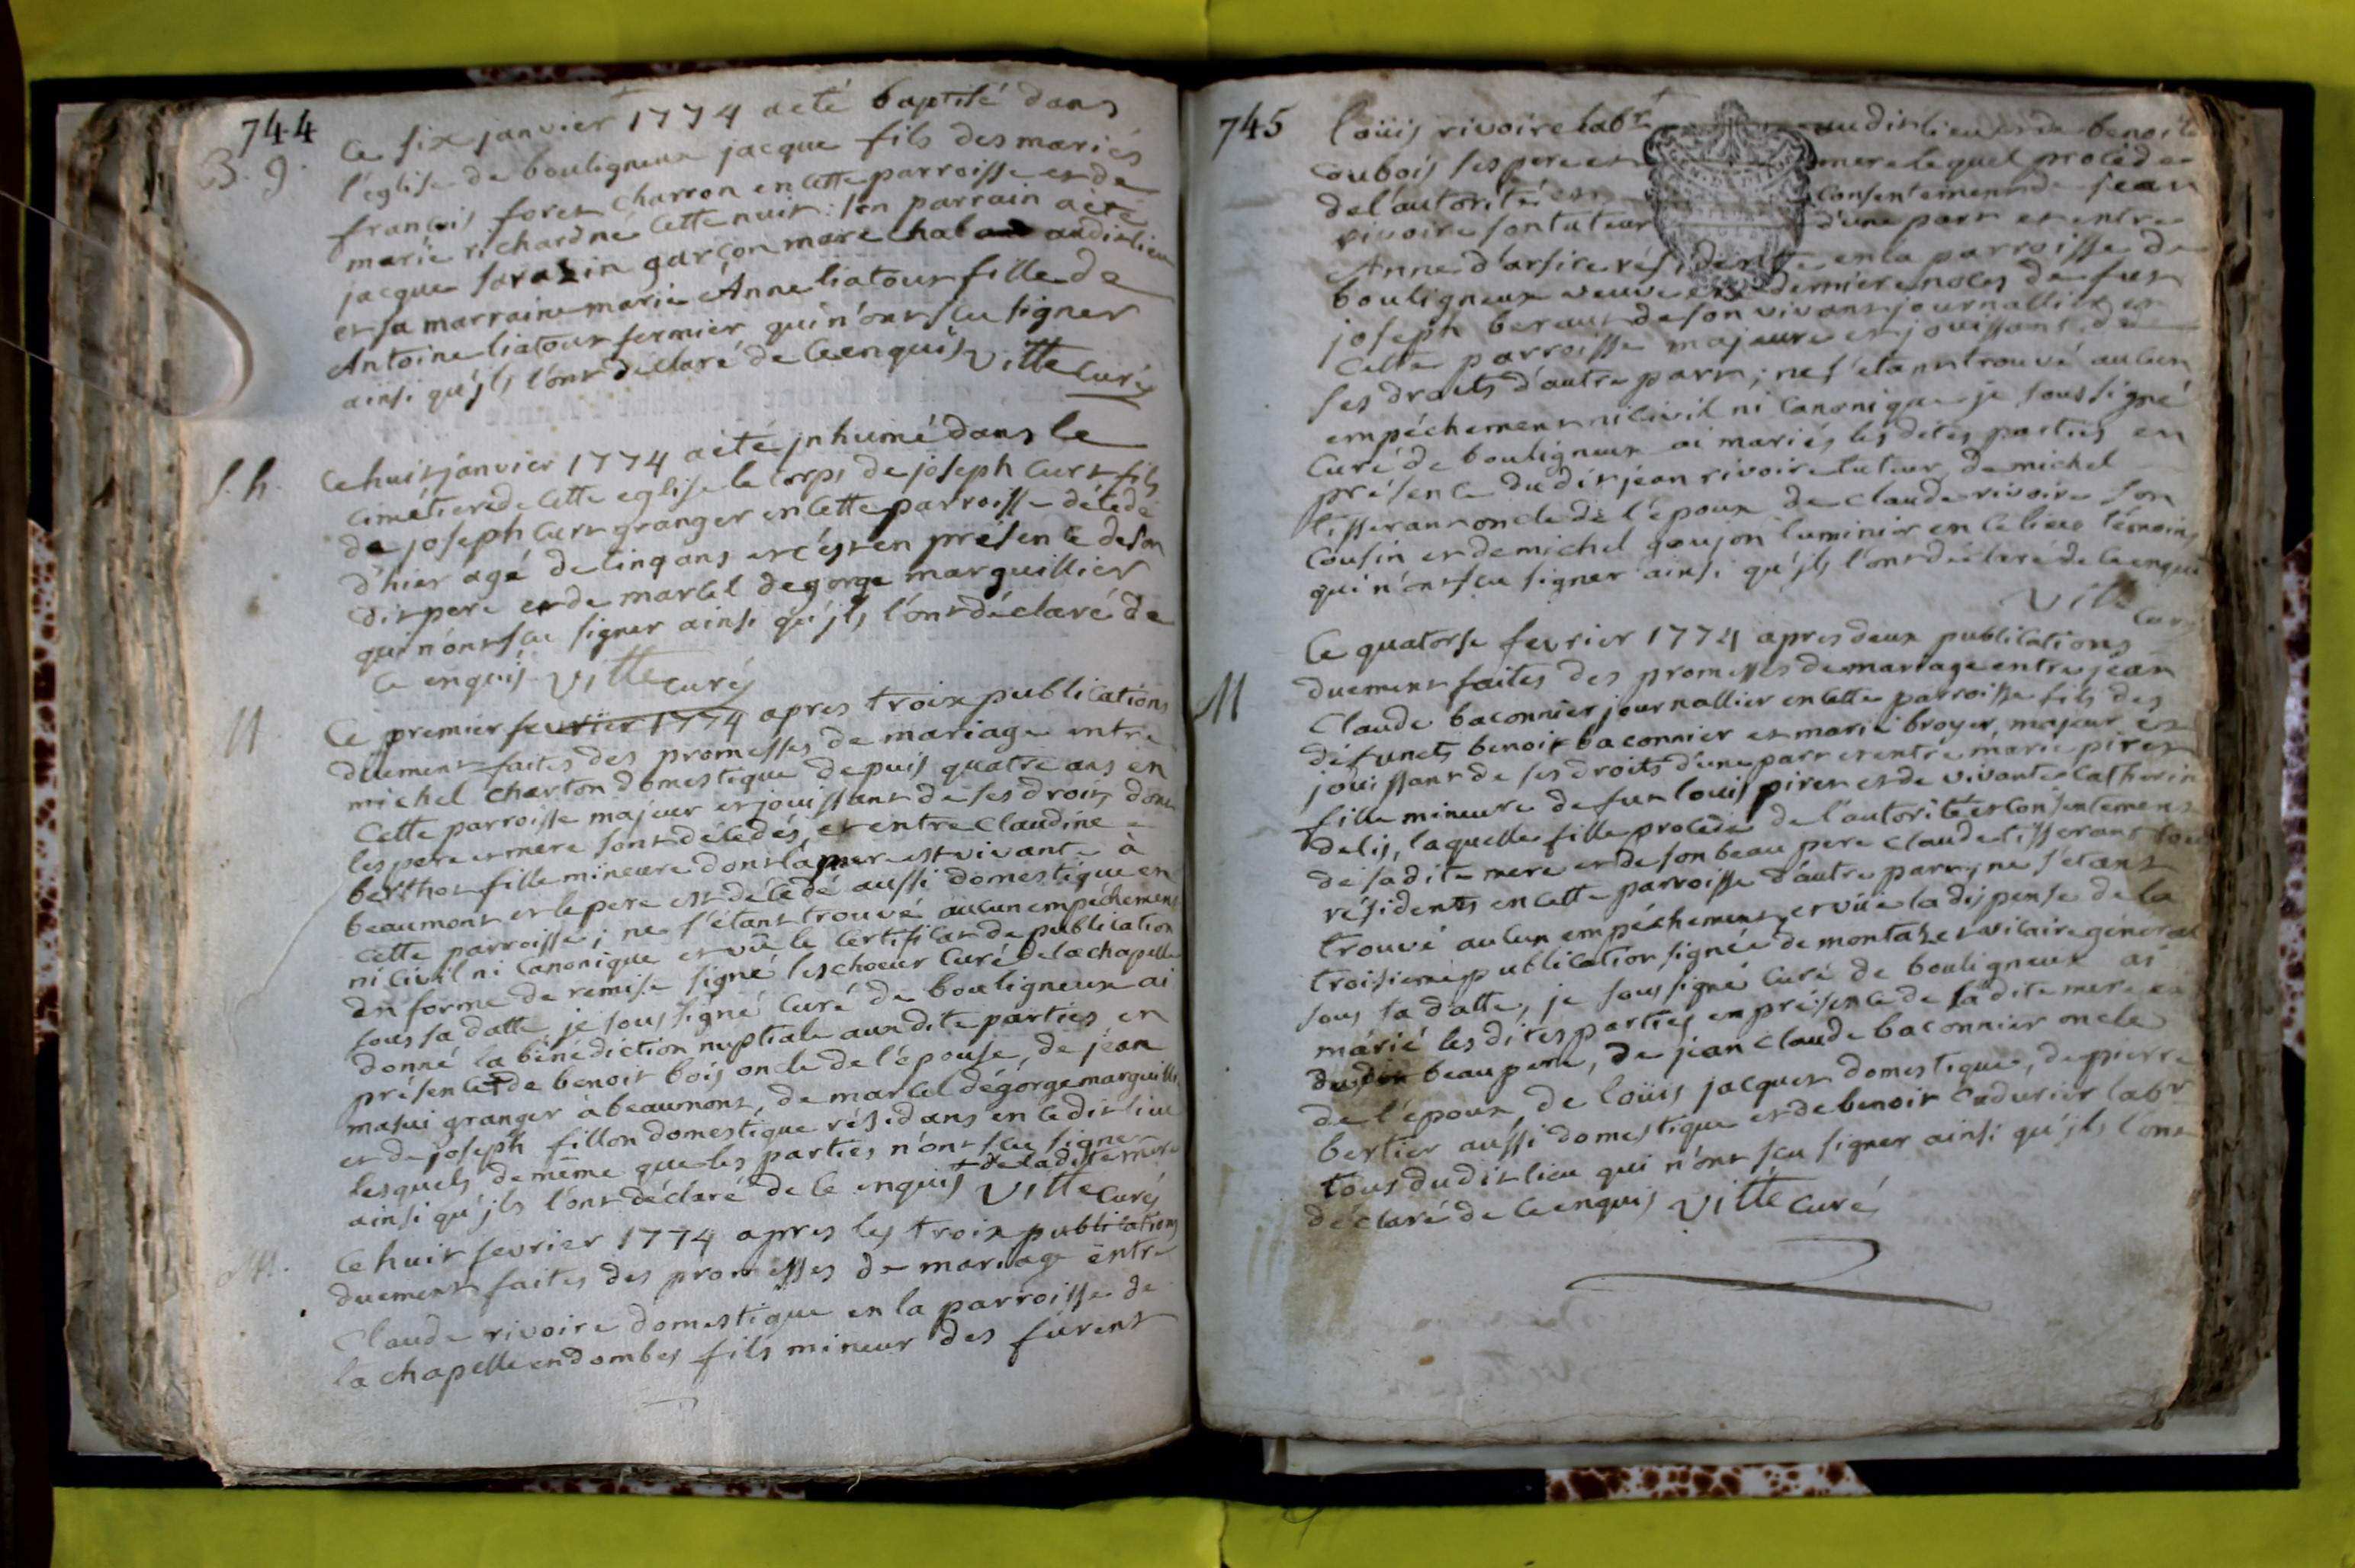 744
B. g.
Ce six janvier 1774 a eté baptisé dans
l'eglise de bouligneux jacque fils des mariés
françois foret charron en cette parroisse et de
marie richard né cette nuit : son parrain a eté
jacque sarazin garçon mare chal audit lieu
et sa marraine marie Anne liatour fille de
Antoine liatour fermier qui n'ont sçu signer
ainsi qu'jls l'ont déclaré de ce enquis Vitte curé
S. h.
Ce huit janvier 1774 a eté jnhumé dans le
cimétiere de cette eglise le corps de joseph curt fils
de joseph curt granger en cette parroisse décédé
d'hier agé de cinq ans et c'est en présence de son
dit pere et de marcel degorge marguillier
qui n'ont sçu signer ainsi qu'jls l'ont déclaré de
ce enquis Vitte curé
M
Ce premier fevrier 1774 apres troix publications
duement faites des promesses de mariage entre
michel charton domestique depuis quatre ans en
cette parroisse majeur et jouissant de ses droits dont
les pere et mere sont décedés, et entre claudine
berthot fille mineure dont la mere est vivante à
beaumont et le pere est décedé aussi domestique en
cette parroisse ; ne s'étant trouvé aucun empéchement
ni civil ni canonique et vû le certificat de publication
en forme de remise signé leschoeur curé de la chapelle
sous sa datte, je soussigné curé de bouligneux ai
donné la bénédiction nuptiale aux dite parties en
présence de benoit bois oncle de l'épouse, de jéan
masui granger à beaumont, de marcel dégorge marguillier
et de joseph fillon domestique résidans en cedit lieu
lesquels de même que les parties n'ont sçu signer
ainsi qu'jls l'ont déclaré de ce enquis + de ladite mere Vitte curé
M.
Ce huit fevrier 1774 apres les troix publications
duement faites des promesses de mariage entre
Claude rivoire domestique en la parroisse de
la chapelle en dombes fils mineur des furent
745
loüis rivoire labr audit lieu et de benoite
coubois ses pere et mere lequel procéde
de l'autorité et consentement de jean
rivoire son tuteur d'une part et entre
Anne d'arsire résidente en la parroisse de
bouligneux veuve en derniere noces de fut
joseph beraut de son vivant journallier en
cette parroisse majeure et jouissant de
ses droits d'autre part ; ne s'étant trouvé aucun
empéchement ni civil ni canonique je soussigné
curé de bouligneux ai mariés les dites parties en
présence dudit jéan rivoire tuteur, de michel
tisserant oncle de l'époux de claude rivoire son
cousin et de michel goujon luminier en ce lieu témoins
qui n'ont sçu signer ainsi qu'jls l'ont déclaré de ce enquis
Vitte curé
M
Ce quatorse fevrier 1774 apres deux publications
duement faites des promesses de mariage entre jéan
Claude baconnier journallier en cette parroisse fils des
défunts benoit baconnier et marie broyer, majeur et
jouissant de ses droits d'une part et entre marie piret
fille mineure de fut louis piret et de vivante catherine
delis, laquelle fille procéde de l'autorité et consentement
de sadite mere et de son beau pere claude tisserant tous
résidents en cette parroisse d'autre part ; ne s'etant
trouvé aucun empéchement, et vûe la dispense de la
troisieme publication signée de montazet vicaire général
sous sa datte, je soussigné curé de bouligneux ai
marié les dites parties en présence de ladite mere et
dudit beau pere, de jean claude baconnier oncle
de l'époux, de loüis jacquet domestique, de pierre
bertier aussi domestique et de benoit cadurier labr
tous dudit lieu qui n'ont sçu signer ainsi qu'jls l'ont
déclaré de ce enquis Vitte curé